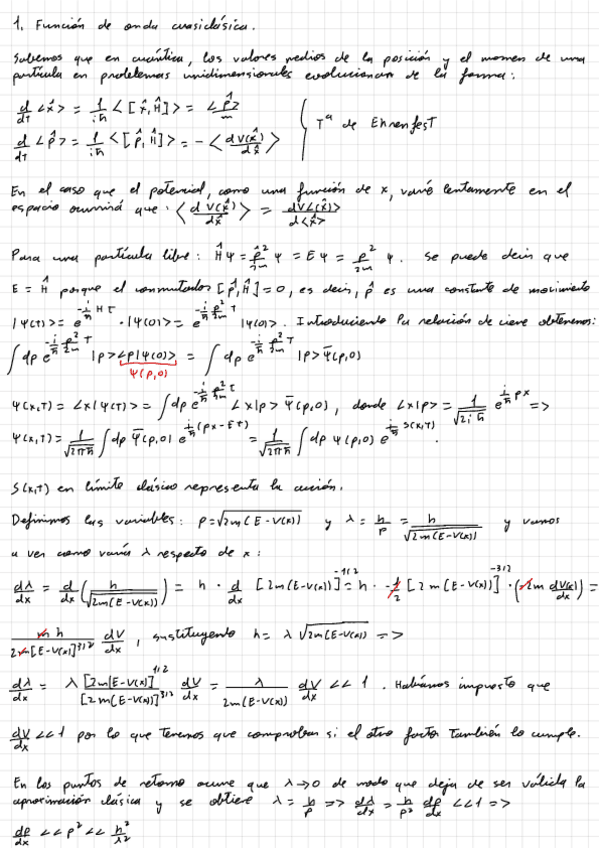 1. Función de onda cuasiclásica.
Sabemos que en cuántica, los valores medios de la posición y el momen de una
partícula en problemas unidimensionales evolucionan de la forma:
d/dT <x̂> = 1/iħ <[x̂,Ĥ]> = <p̂>/m
d/dT <p̂> = 1/iħ <[p̂,Ĥ]> = -<dV(x̂)/dx̂>
Tª de Ehrenfest
En el caso que el potencial, como una función de x, varíe lentamente en el
espacio ocurrirá que: <dV(x̂)/dx̂> = dV(<x̂>)/d<x̂>
Para una partícula libre: Ĥψ = p̂²/2m ψ = Eψ = p²/2m ψ. Se puede decir que
E = Ĥ porque el conmutador [p̂,Ĥ]=0, es decir, p̂ es una constante de movimiento
|ψ(T)> = e^(-i/ħ HT) · |ψ(0)> = e^(-i/ħ p̂²/2m T) |ψ(0)>. Introduciendo la relación de cierre obtenemos:
∫dp e^(-i/ħ p²/2m T) |p><p|ψ(0)> = ∫dp e^(-i/ħ p²/2m T) |p> ψ̄(p,0)
ψ(p,0)
ψ(x,T) = <x|ψ(T)> = ∫dp e^(-i/ħ p²/2m T) <x|p> ψ̄(p,0), donde <x|p> = 1/√(2iħ) e^(i/ħ px) =>
ψ(x,T) = 1/√(2πħ) ∫dp ψ̄(p,0) e^(i/ħ (px-ET)) = 1/√(2πħ) ∫dp ψ(p,0) e^(i/ħ S(x,T)).
S(x,T) en límite clásico representa la acción.
Definimos las variables: p=√(2m(E-V(x))) y λ = h/p = h/√(2m(E-V(x))) y vamos
a ver como varía λ respecto de x:
dλ/dx = d/dx (h/√(2m(E-V(x)))) = h · d/dx [2m(E-V(x))]^(-1/2) = h · -1/2 [2m(E-V(x))]^(-3/2) · (-2m dV(x)/dx) =
m h/2m[E-V(x)]^(3/2) dV/dx, sustituyendo h = λ √(2m(E-V(x))) =>
dλ/dx = λ [2m(E-V(x))]^(1/2)/[2m(E-V(x))]^(3/2) dV/dx = λ/2m(E-V(x)) dV/dx << 1. Habíamos impuesto que
dV/dx << 1 por lo que tenemos que comprobar si el otro factor también lo cumple.
En los puntos de retorno ocurre que λ→0 de modo que deja de ser válida la
aproximación clásica y se obtiene λ = h/p => dλ/dx = h/p² dp/dx << 1 =>
dp/dx << p² << h²/λ²